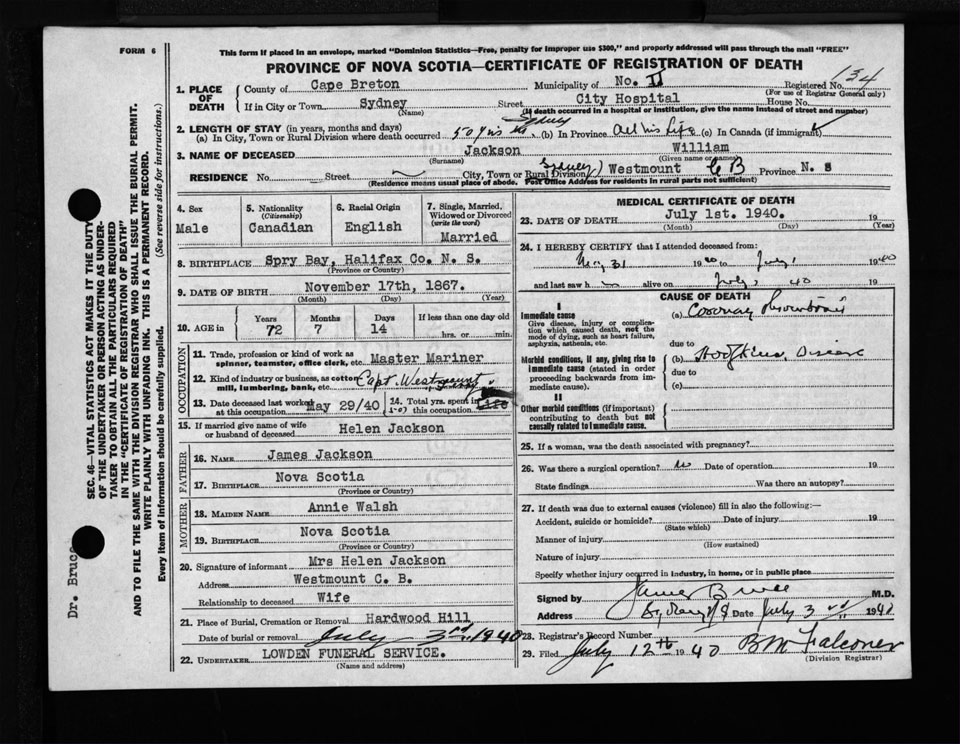 FORM 6
This form if placed in an envelope, marked "Dominion Statistics—Free, penalty for improper use $300," and properly addressed will pass through the mail "FREE"
PROVINCE OF NOVA SCOTIA—CERTIFICATE OF REGISTRATION OF DEATH
134
1. PLACE OF DEATH
County of Cape Breton Municipality of No. II Registered No.
(For use of Registrar General only)
If in City or Town Sydney Street City Hospital House No.
(Name) (If death occurred in hospital or institution, give the name instead of street and number)
2. LENGTH OF STAY (in years, months and days) Sydney
(a) In City, Town or Rural Division where death occurred 50 yrs (b) In Province All his Life (c) In Canada (if immigrant)
3. NAME OF DECEASED Jackson William
(Surname) (Given name or names)
RESIDENCE No. Street City, Town or Rural Division (Sydney) Westmount C B Province N. S
(Residence means usual place of abode. Post Office Address for residents in rural parts not sufficient)
4. Sex
Male
5. Nationality
(Citizenship)
Canadian
6. Racial Origin
English
7. Single, Married, Widowed or Divorced
(write the word)
Married
8. BIRTHPLACE Spry Bay, Halifax Co. N. S.
(Province or Country)
9. DATE OF BIRTH November 17th, 1867.
(Month) (Day) (Year)
10. AGE in
Years Months Days If less than one day old
72 7 14 hrs. or min.
OCCUPATION
11. Trade, profession or kind of work as spinner, teamster, office clerk, etc. Master Mariner
12. Kind of industry or business, as cotton mill, lumbering, bank, etc. Capt. Westmount Ferry
13. Date deceased last worked at this occupation May 29/40
14. Total yrs. spent in this occupation
15. If married give name of wife or husband of deceased Helen Jackson
FATHER
16. NAME James Jackson
17. BIRTHPLACE Nova Scotia
(Province or Country)
MOTHER
18. MAIDEN NAME Annie Walsh
19. BIRTHPLACE Nova Scotia
(Province or Country)
20. Signature of informant Mrs Helen Jackson
Address Westmount C. B.
Relationship to deceased Wife
21. Place of Burial, Cremation or Removal Hardwood Hill
Date of burial or removal July 3rd 1940
22. UNDERTAKER LOWDEN FUNERAL SERVICE.
(Name and address)
MEDICAL CERTIFICATE OF DEATH
23. DATE OF DEATH July 1st. 1940. 19
(Month) (Day) (Year)
24. I HEREBY CERTIFY that I attended deceased from:
May 31 1940 to July 1 1940
and last saw h alive on July 1 40 19
CAUSE OF DEATH
I
Immediate cause
Give disease, injury or complication which caused death, not the mode of dying, such as heart failure, asphyxia, asthenia, etc.
(a) Coronary Thrombosis
due to
Morbid conditions, if any, giving rise to immediate cause (stated in order proceeding backwards from immediate cause).
(b) Hodgkins Disease
due to
(c)
II
Other morbid conditions (if important) contributing to death but not causally related to immediate cause.
25. If a woman, was the death associated with pregnancy?
26. Was there a surgical operation? no Date of operation 19
State findings Was there an autopsy?
27. If death was due to external causes (violence) fill in also the following:—
Accident, suicide or homicide? Date of injury 19
(State which)
Manner of injury
(How sustained)
Nature of injury
Specify whether injury occurred in industry, in home, or in public place
Signed by James Bruce M.D.
Address Date July 3rd 1940
28. Registrar's Record Number
29. Filed July 12th 1940 B M Falconer
(Division Registrar)
SEC. 46—VITAL STATISTICS ACT MAKES IT THE DUTY
OF THE UNDERTAKER OR PERSON ACTING AS UNDER-
TAKER TO OBTAIN ALL THE PARTICULARS REQUIRED
IN THE "CERTIFICATE OF REGISTRATION OF DEATH"
AND TO FILE THE SAME WITH THE DIVISION REGISTRAR WHO SHALL ISSUE THE BURIAL PERMIT.
WRITE PLAINLY WITH UNFADING INK. THIS IS A PERMANENT RECORD.
Every item of information should be carefully supplied. (See reverse side for instructions.)
Dr. Bruce